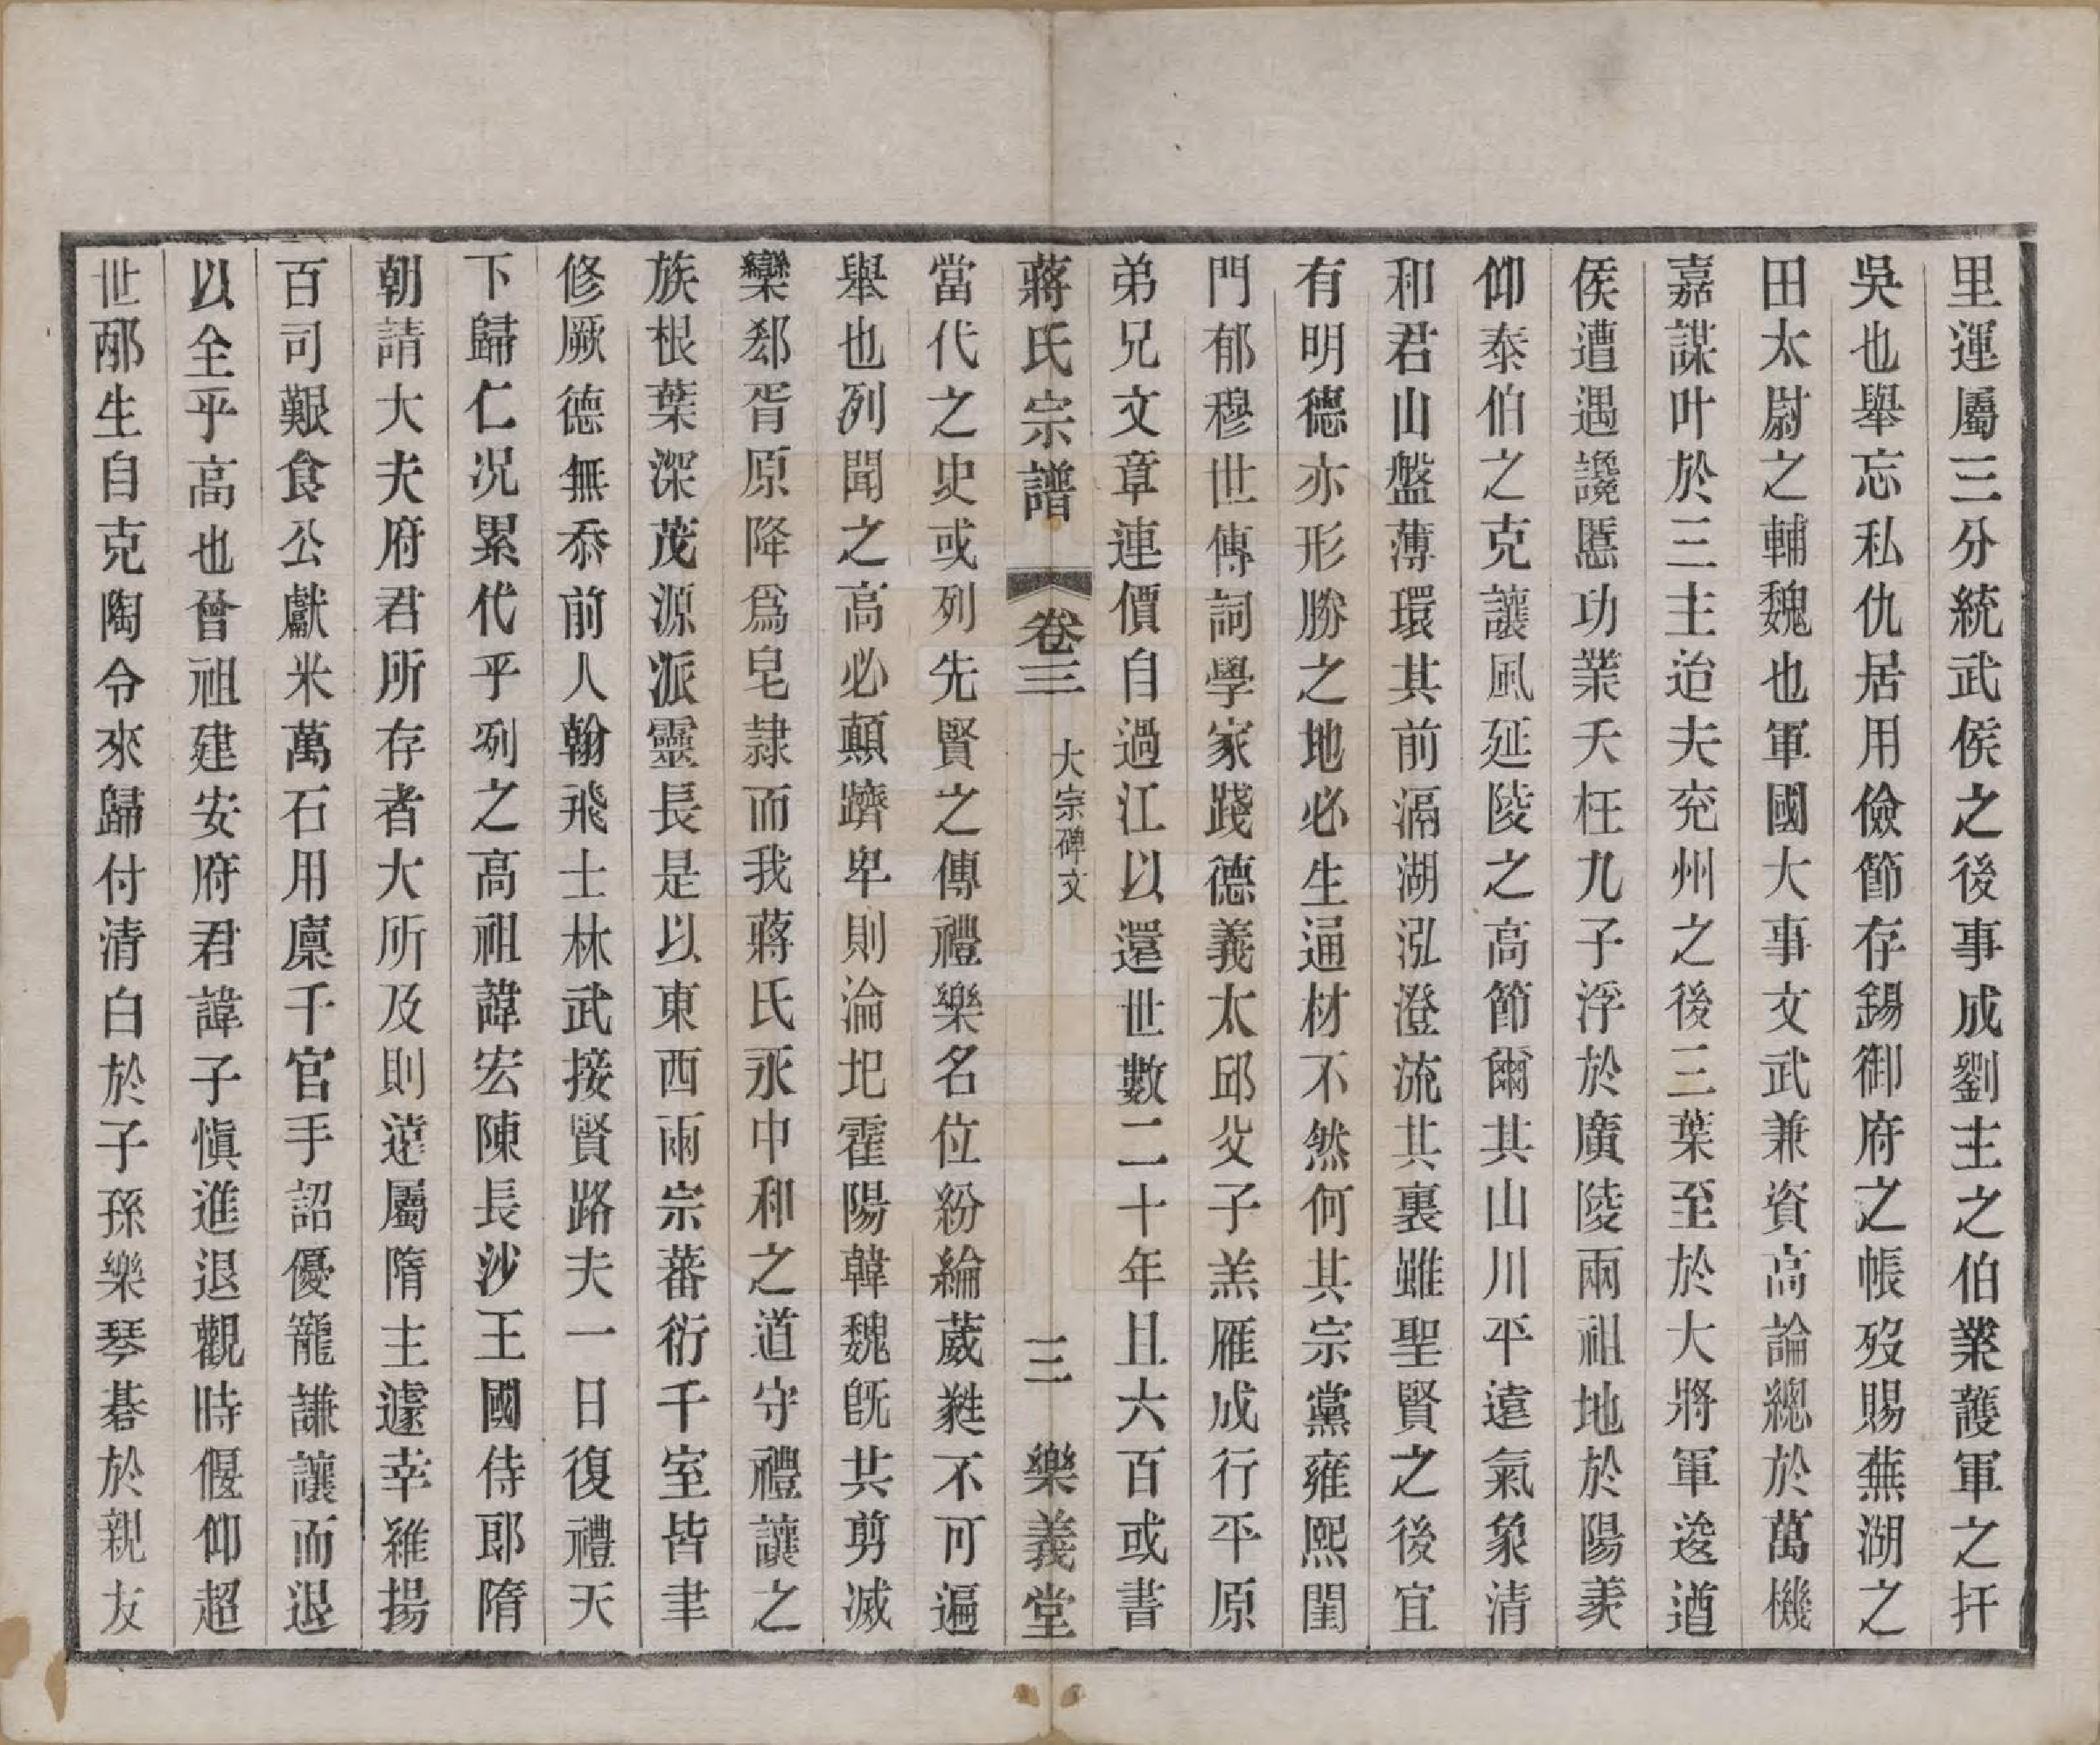 里運屬三分統武侯之後事成劉主之伯業護軍之扞
吳也舉忘私仇居用儉節存錫御府之帳歿賜蕪湖之
田太尉之輔魏也軍國大事文武兼資高論總於萬機
嘉謀叶於三主迨夫兖州之後三葉至於大將軍逡遒
侯遭遇讒慝功業夭枉九子浮於廣陵兩祖地於陽羨
仰泰伯之克讓風延陵之高節爾其山川平遠氣象清
和君山盤薄環其前滆湖泓澄流其裏雖聖賢之後宜
有明德亦形勝之地必生通材不然何其宗黨雍熙閨
門郁穆世傳詞學家踐德義太邱父子羔雁成行平原
弟兄文章連價自過江以還世數二十年且六百或書
蔣氏宗譜 卷三 大宗碑文 三 樂義堂
當代之史或列先賢之傳禮樂名位紛綸葳蕤不可遍
舉也列聞之高必顛躋卑則淪圯霍陽韓魏旣共剪滅
欒郄胥原降爲皂隷而我蔣氏永中和之道守禮讓之
族根葉深茂源派靈長是以東西兩宗蕃衍千室皆聿
修厥德無忝前人翰飛士林武接賢路夫一日復禮天
下歸仁况累代乎列之高祖諱宏陳長沙王國侍郎隋
朝請大夫府君所存者大所及則遠屬隋主遽幸維揚
百司艱食公獻米萬石用廩千官手詔優寵謙讓而退
以全乎高也曾祖建安府君諱子慎進退觀時偃仰超
世邴生自克陶令來歸付清白於子孫樂琴碁於親友